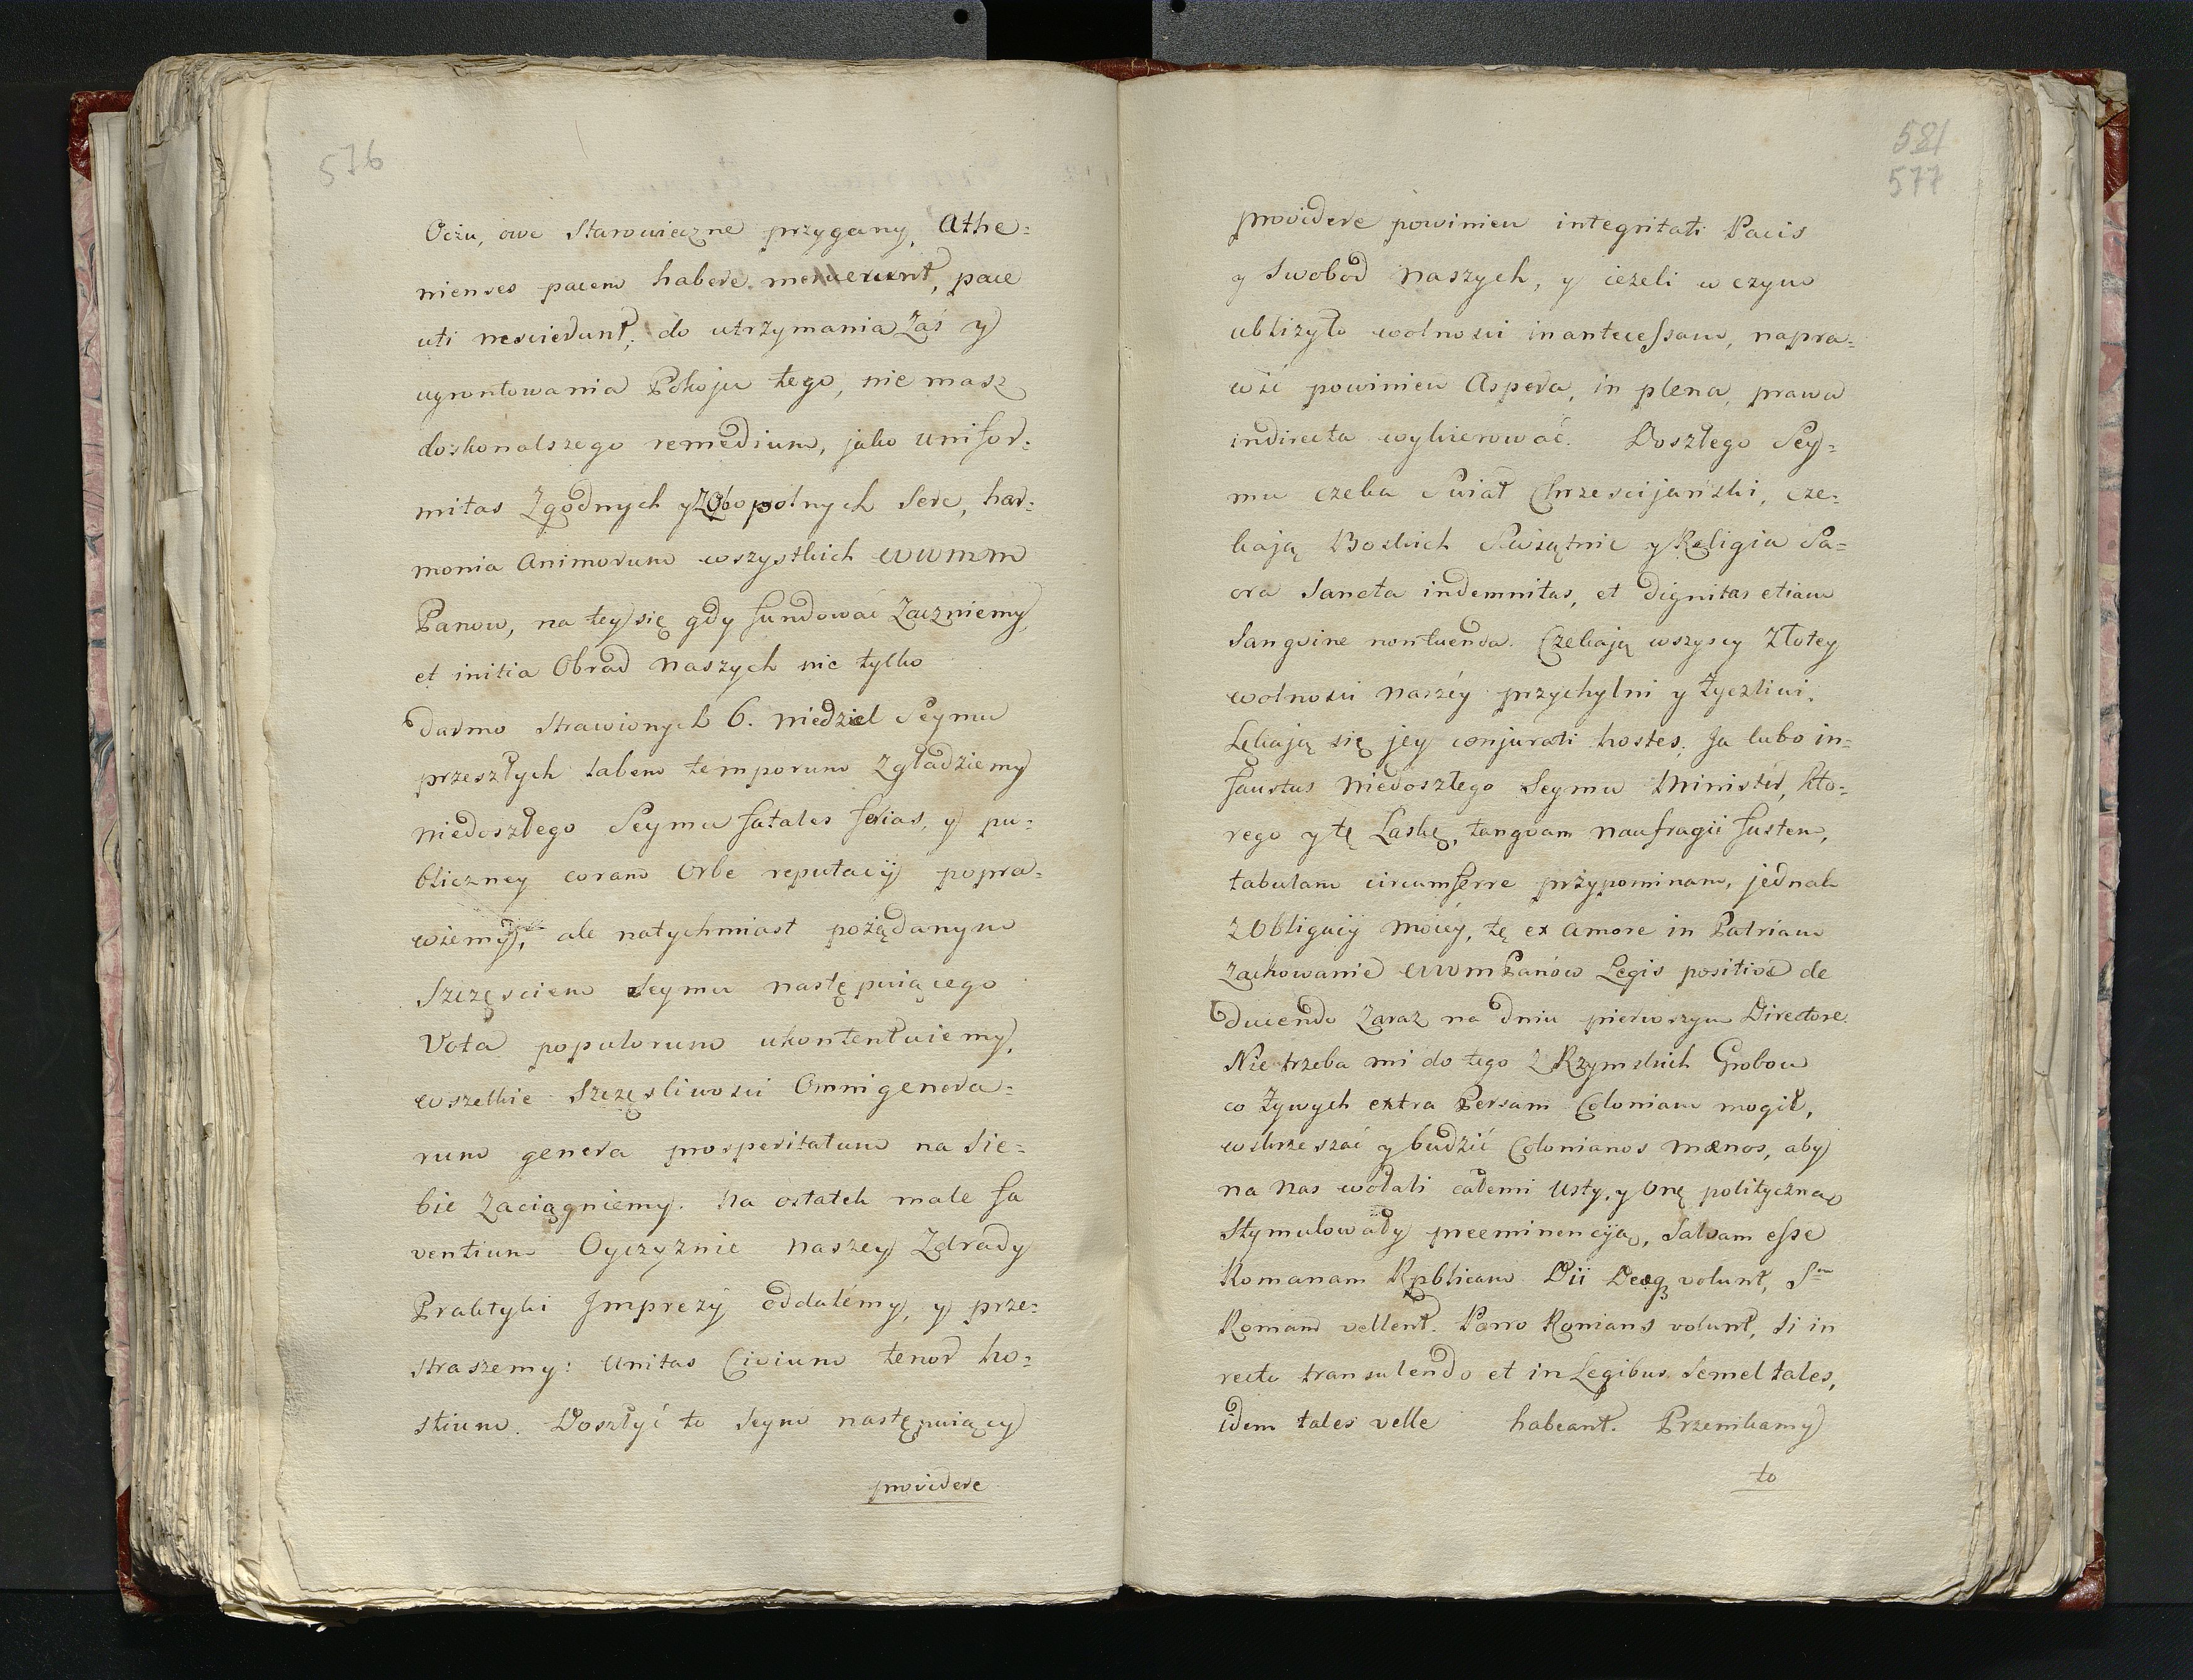 576
Oczu, owe Starowieczne przygany, Athe=
nienses pacem habere meruerunt, pace
uti nescierunt; do utrzymania Zaś y
ugrontowania Pokoju tego, nie masz
doskonalszego remedium, jako unifor=
mitas Zgodnych y Zobopolnych Serc, har=
monia Animorum wszystkich WWMM
Panow, na tey się gdy fundować Zaczniemy
et initia Obrad naszych nie tylko
darmo Strawionych 6. niedziel Seymu
przeszłych labem temporum Zgładziemy
niedoszłego Seymu fatales ferias, y pu=
bliczney coram Orbe reputacÿ popra=
wiemy, ale natychmiast pożądanym
Szczęściem Seymu następuiącego
Vota populorum ukontentuiemy,
wszelkie Szczęsliwosci Omnigenera=
rum genera prosperitatum na Sie=
bie Zaciągniemy. Na ostatek male fa
ventium Oyczyznie naszey Zdrady
Praktyki Imprezÿ oddalémy, y prze=
straszemy: Unitas Civium tenor ho=
stium. Doszłyć to Seym następuiący
providere
581
577
providere powinien integritati Pacis
y Swobod naszych, y ieżeli w czym
ubliżyło wolnosci in antecessam, napra=
wić powinien Aspera, in plena, prawa
indirecta wykierować. Doszłego Sey=
mu czeka Swiat Chrzescijański, cze=
kają Boskich Swiątnic y Religia Sa=
cra Sancta indemnitas, et dignitas etiam
Sangvine non tuenda. Czekają wszyscy Złotey
wolnosci naszéy przychylni y życzliwi.
Lękają się jey conjurati hostes. Ja lubo in=
faustus niedoszłego Seymu Minister, kto=
rego y tę Laskę, tanqvam naufragii fustem,
tabulam circumferre przypominam, jednak
z Obligacÿ moiey, tę ex Amore in Patriam
Zachowanie WWMPanów Legis positivæ de
ducendo Zaraz na dniu pierwszym Directore.
Nie trzeba mi do tego z Rzymskich Grobow
co żywych extra Persam Coloniam mogił,
wskrzeszać y budzić Colonianos mænos, aby
na nas wołali całemi Usty, y Onę polityczną
Stymulowały preeminencÿą, Salvam esse
Romanam Rpblicam Dii Deæq; volunt, Sm
Romani vellent. Porro Romans volunt, Si in
recto transulendo et in Legibus Semel tales,
idem tales velle habeant. Przenikamy
to